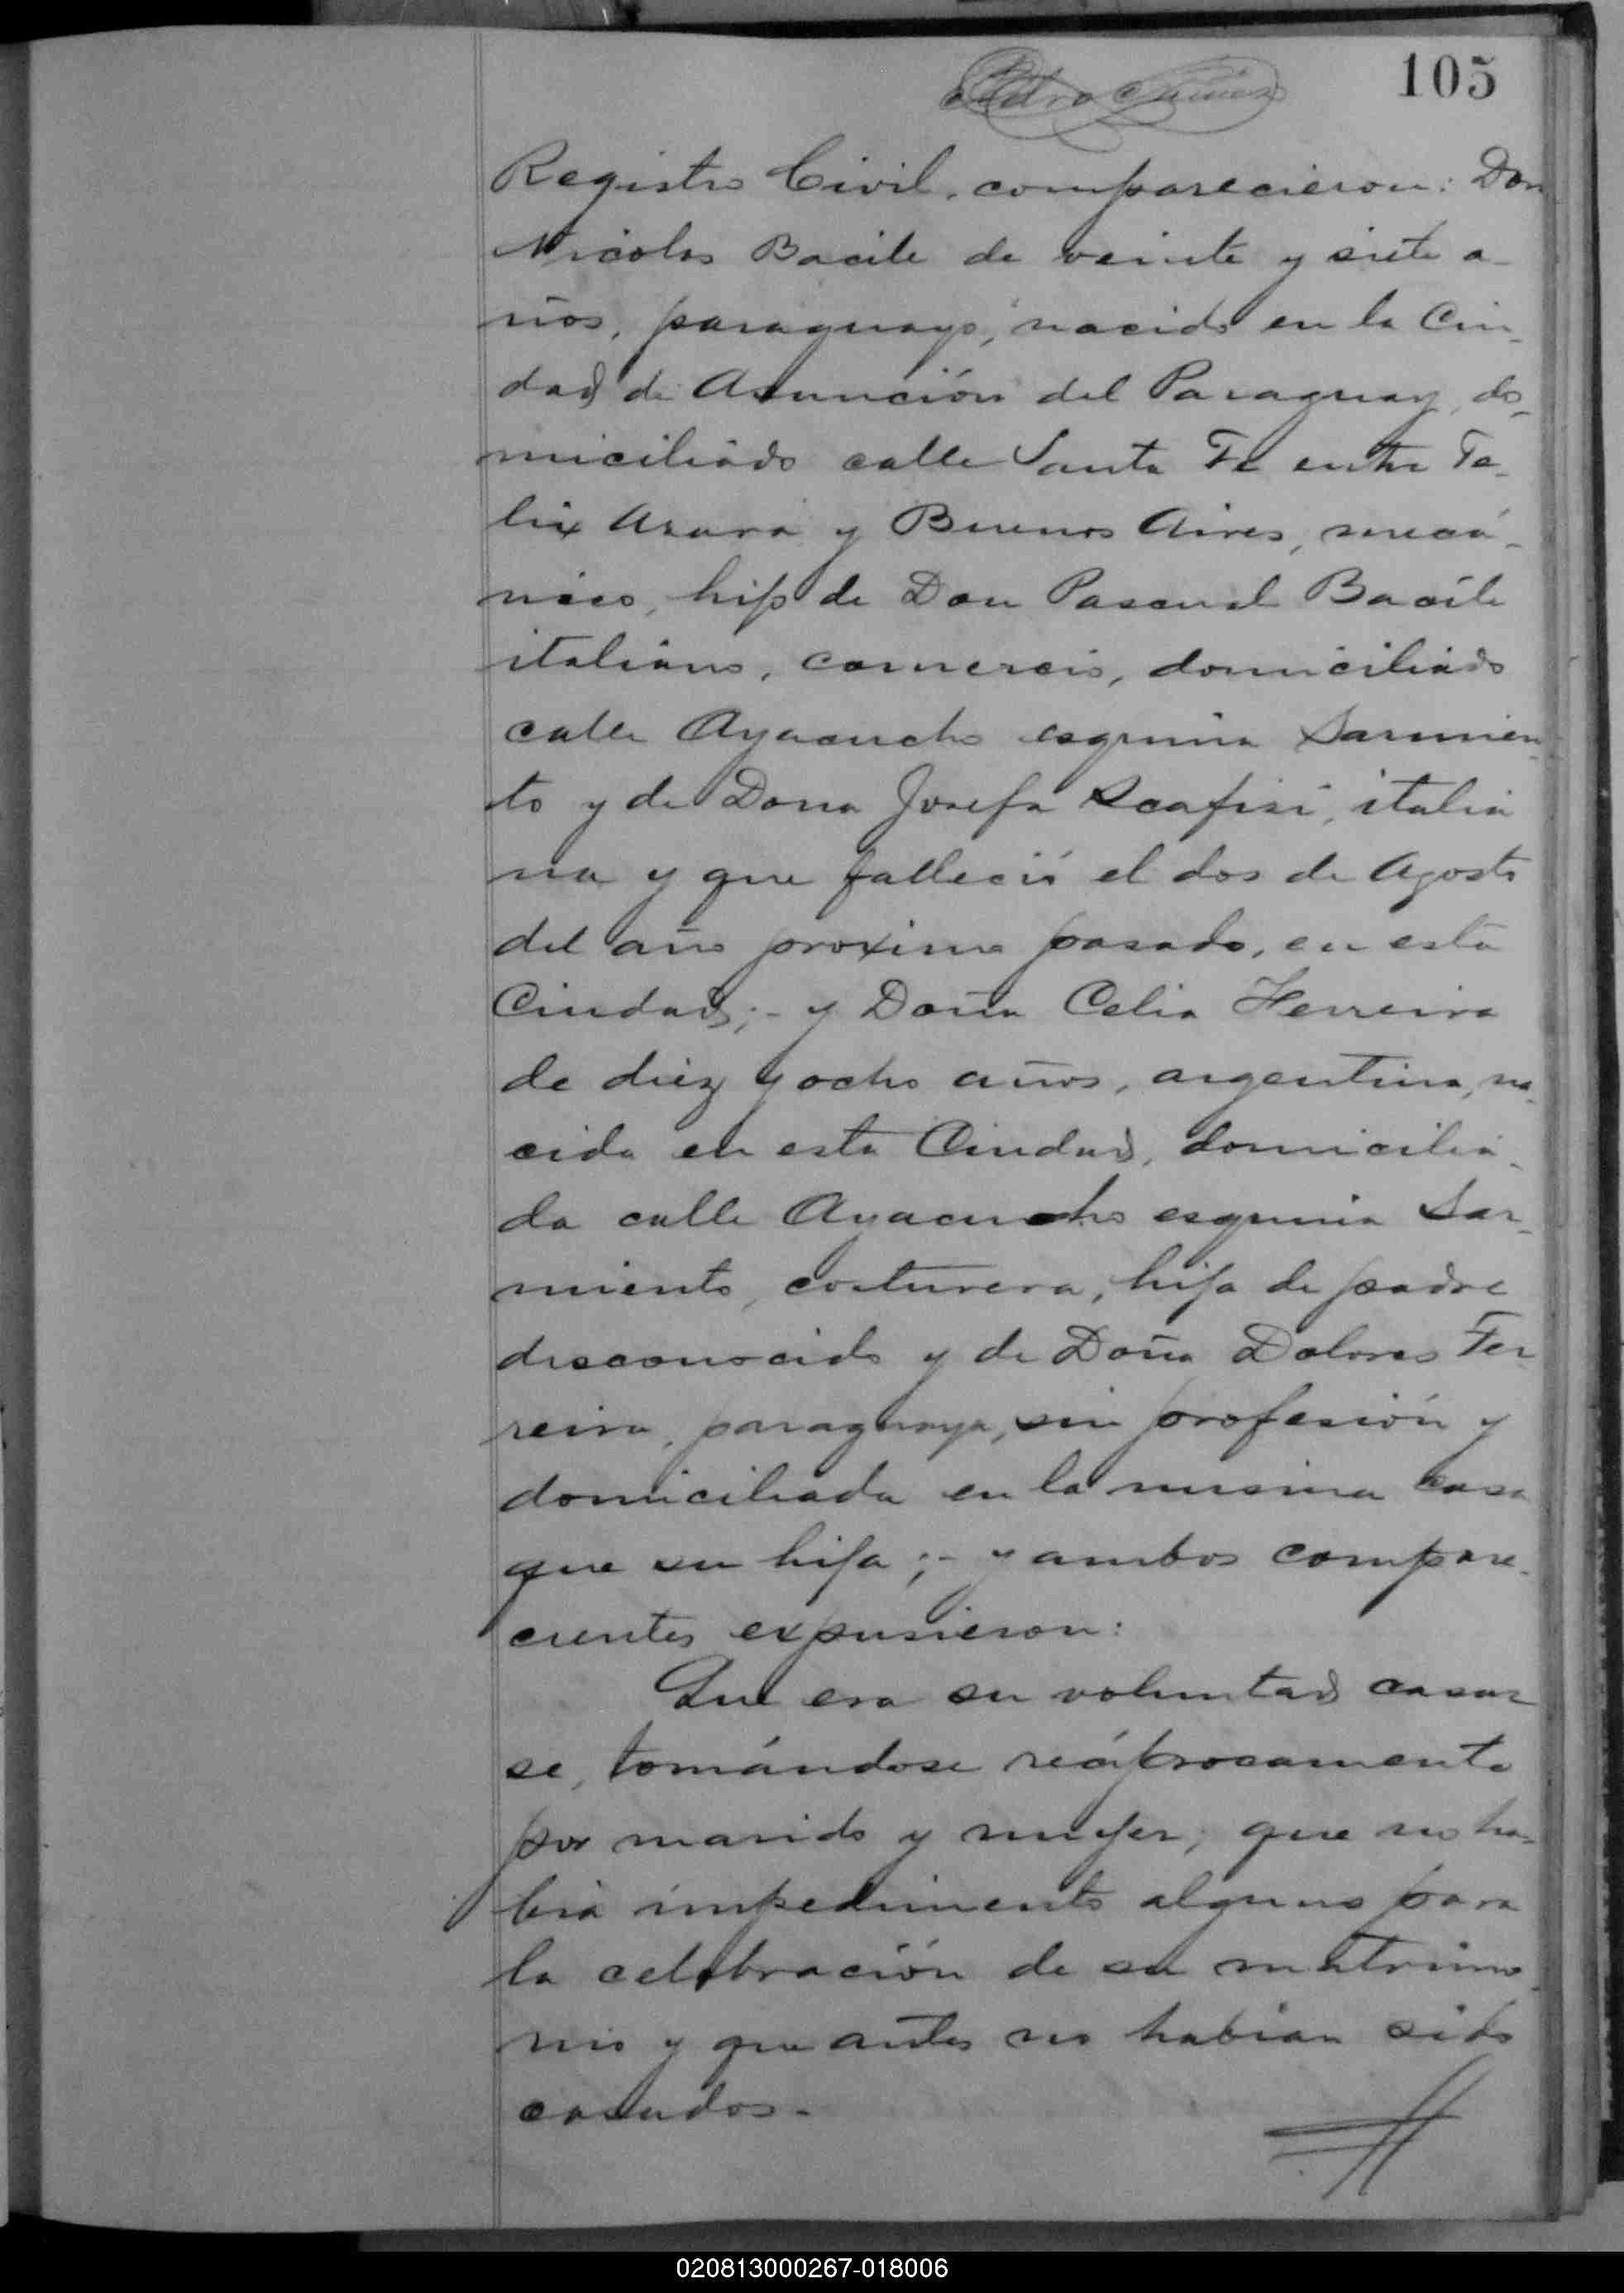 105
Pedro Nuñez
Registro Civil, comparecieron: Don
Nicolas Bacile de veinte y siete a-
ños, paraguayo, nacido en la Ciu-
dad de Asunción del Paraguay, do-
miciliado calle Santa Fé entre Fe-
lix Azara y Buenos Aires, mecá-
nico, hijo de Don Pascual Bacile
italiano, comercio, domiciliado
calle Ayacucho esquina Sarmien
to y de Dona Josefa Scafisi, italia
na y que falleció el dos de Agosto
del año proximo pasado, en esta
Ciudad;- y Doña Celia Ferreira
de diez y ocho años, argentina, na-
cida en esta Ciudad, domicilia-
da calle Ayacucho esquina Sar-
miento, costurera, hija de padre
desconocido y de Doña Dolores Fer-
reira, paraguaya, sin profesión y
domiciliada en la misma casa
que su hija;- y ambos compare-
cientes expusieron:
Que era su voluntad casar
se, tomándose recíprocamente
por marido y mujer; que no ha-
bia impedimento alguno para
la celebración de su matrimo-
nio y que antes no habian sido
casados.-
020813000267-018006